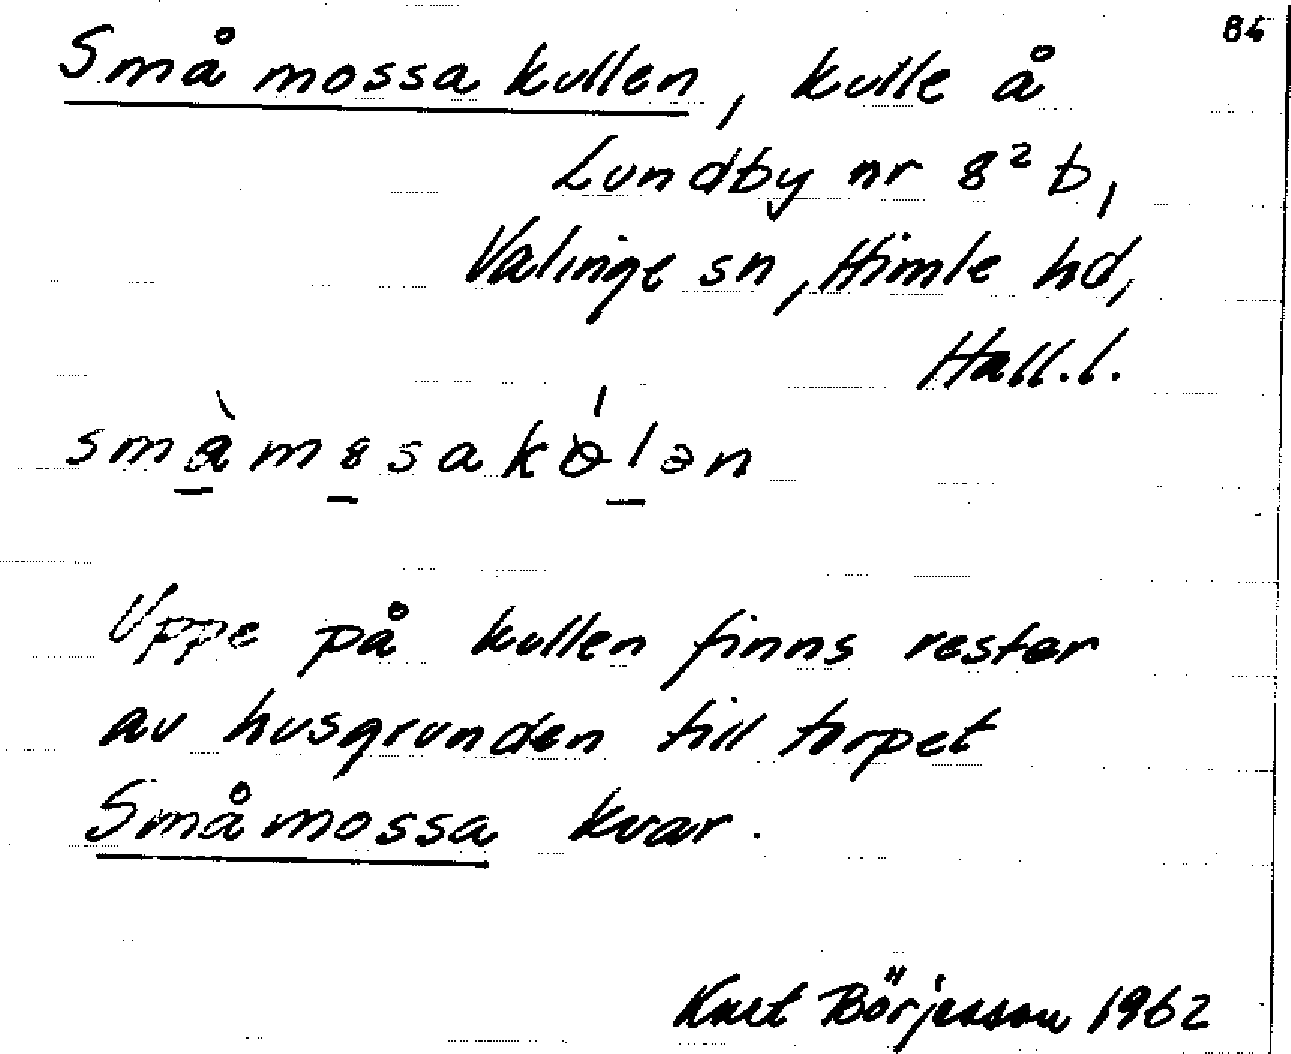 86
Småmossakullen, kulle å
Lundby nr 8² b,
Valinge sn, Himle hd,
Hall.l.
Uppe på kullen finns rester
av husgrunden till torpet
Småmossa kvar.
Kurt Börjesson 1962